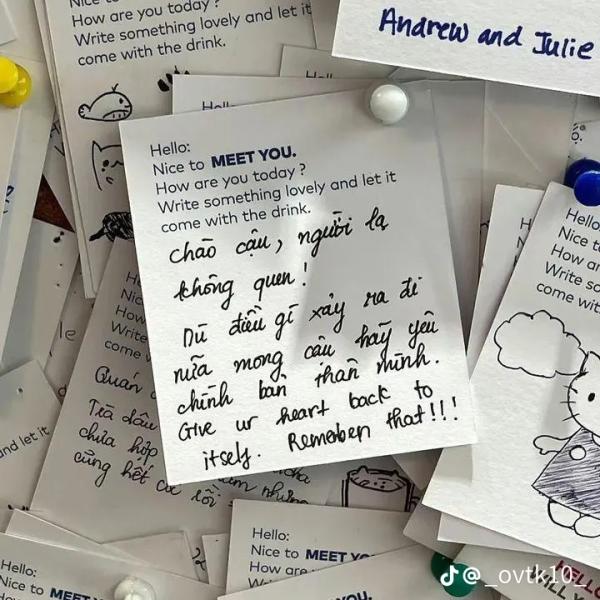 How are you today ?
Write something lovely and let it
come with the drink.
Andrew and Julie
Hello:
Nice to MEET YOU.
How are you today ?
Write something lovely and let it
come with the drink.
chào cậu, người lạ
không quen !
Dù điều gì xảy ra đi
nữa mong cậu hãy yêu
chính bản thân mình.
Give ur heart back to
itself. Remember that!!!
Quán
Trà dâu
chưa hợp
cũng hết cả rồi
and let it
Hello:
Nice to MEET
Hello:
Nice to MEET YO
How are
Hello
_ovtk10_